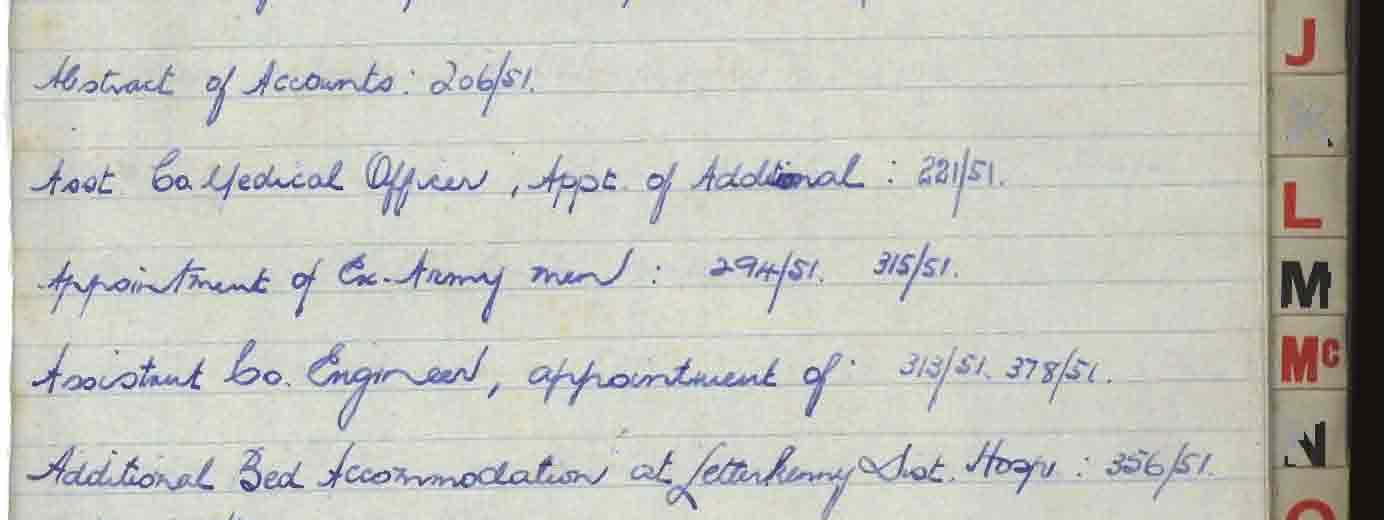 Abstract of Accounts: 206/51.
Asst. Co. Medical Officer, Appt. of Additional : 221/51.
Appointment of Ex-Army men : 294/51. 315/51.
Assistant Co. Engineer, appointment of 313/51. 378/51.
Additional Bed Accommodation at Letterkenny Dist. Hosp. : 356/51.
J
K
L
M
Mc
N
O